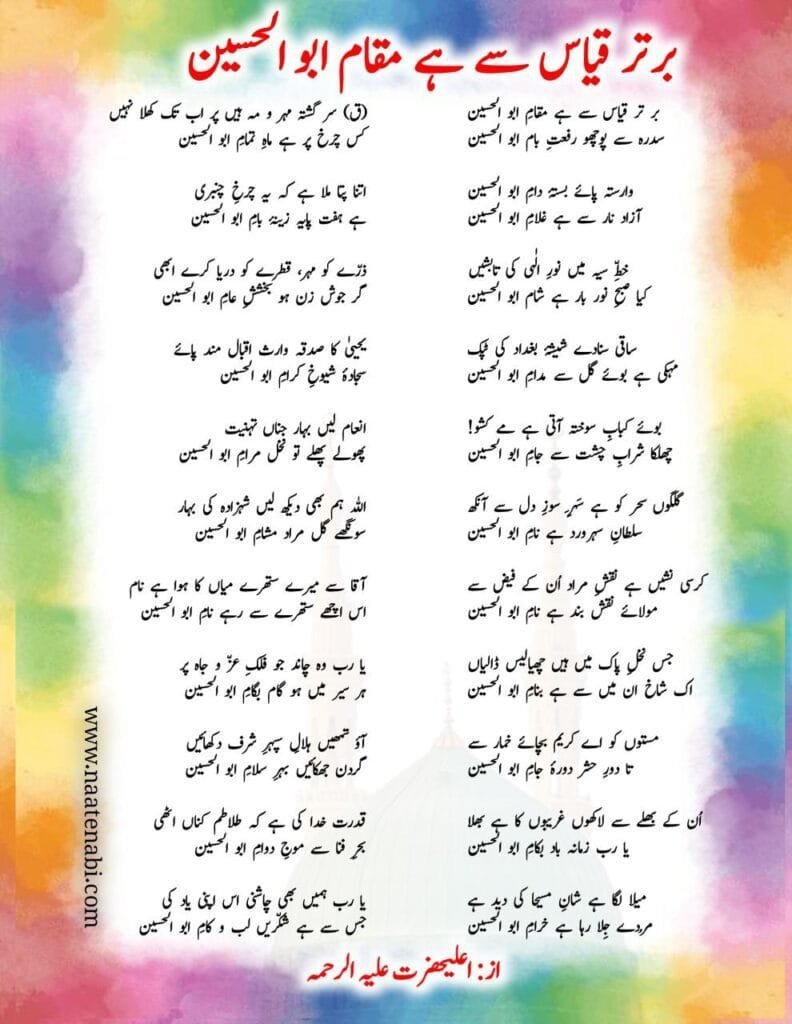 برتر قیاس سے ہے مقام ابو الحسین
بر تر قیاس سے ہے مقامِ ابو الحسین
سدرہ سے پوچھو رفعتِ بام ابو الحسین
وارستہ پائے بستۂ دامِ ابو الحسین
آزاد نار سے ہے غلامِ ابو الحسین
خطِّ سیہ میں نورِ الٰہی کی تابشیں
کیا صبحِ نور بار ہے شام ابو الحسین
ساقی سنادے شیشۂ بغداد کی ٹپک
مہکی ہے بوئے گل سے مدامِ ابو الحسین
بوئے کبابِ سوختہ آتی ہے مے کشو!
چھلکا شرابِ چشت سے جامِ ابو الحسین
گلگوں سحر کو ہے سَہَرِ سوزِ دل سے آنکھ
سلطانِ سہرورد ہے نامِ ابو الحسین
کرسی نشیں ہے نقشِ مراد اُن کے فیض سے
مولائے نقش بند ہے نامِ ابو الحسین
جس نخلِ پاک میں ہیں چھیالیس ڈالیاں
اک شاخ ان میں سے ہے بنامِ ابو الحسین
مستوں کو اے کریم بچائے خمار سے
تا دورِ حشر دورۂ جامِ ابو الحسین
اُن کے بھلے سے لاکھوں غریبوں کا ہے بھلا
یا رب زمانہ باد بکامِ ابو الحسین
میلا لگا ہے شانِ مسیحا کی دید ہے
مردے جِلا رہا ہے خرامِ ابو الحسین
(ق) سر گشتہ مہر و مہ ہیں پر اب تک کھلا نہیں
کس چرخ پر ہے ماہِ تمامِ ابو الحسین
اتنا پتا ملا ہے کہ یہ چرخِ چنبری
ہے ہفت پایہ زینۂ بامِ ابو الحسین
ذرّے کو مہر، قطرے کو دریا کرے ابھی
گر جوش زن ہو بخششِ عامِ ابو الحسین
یحییٰ کا صدقہ وارث اقبال مند پائے
سجادۂ شیوخِ کرامِ ابو الحسین
انعام لیں بہار جناں تہنیت
پھولے پھلے تو نخل مرامِ ابو الحسین
اللہ ہم بھی دیکھ لیں شہزادہ کی بہار
سونگھے گل مراد مشامِ ابو الحسین
آقا سے میرے ستھرے میاں کا ہوا ہے نام
اس اچھے ستھرے سے رہے نامِ ابو الحسین
یا رب وہ چاند جو فلکِ عزّ و جاہ پر
ہر سیر میں ہو گام بگامِ ابو الحسین
آؤ تمھیں ہلالِ سپہرِ شرف دکھائیں
گردن جھکائیں بہرِ سلامِ ابو الحسین
قدرت خدا کی ہے کہ طلاطم کناں اٹھی
بحرِ فنا سے موجِ دوامِ ابو الحسین
یا رب ہمیں بھی چاشنی اس اپنی یاد کی
جس سے ہے شکّریں لب و کامِ ابو الحسین
از: اعلیحضرت علیہ الرحمہ
www.naatenabi.com